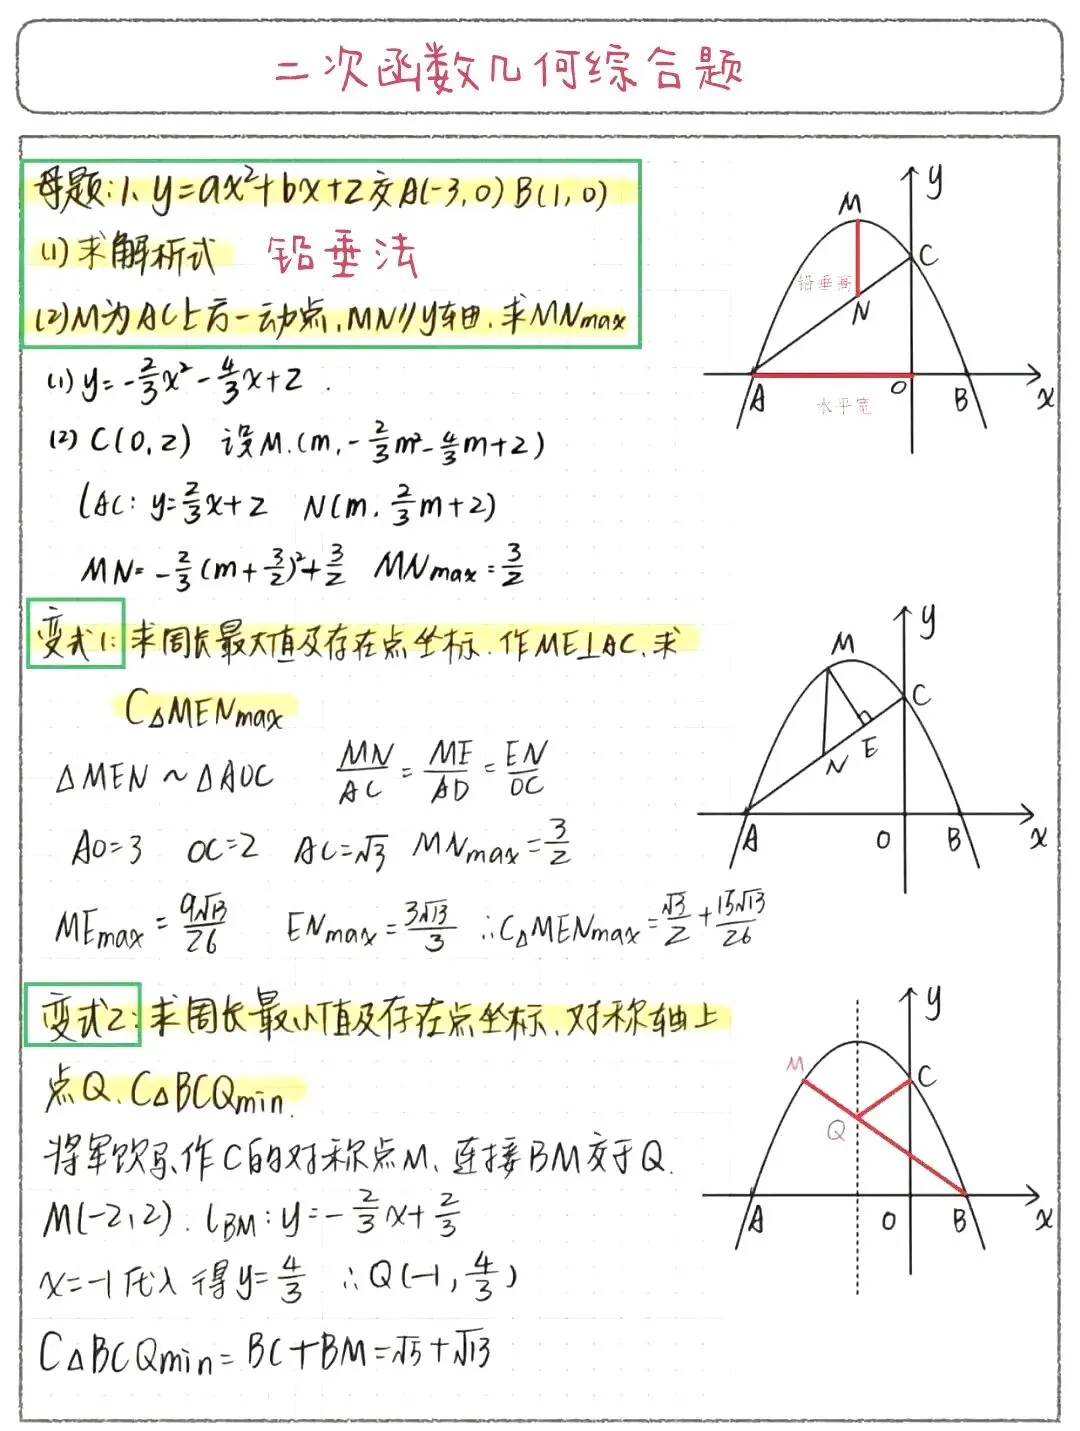 二次函数几何综合题
母题:1、y=ax²+bx+2交A(-3,0)B(1,0)
(1)求解析式 铅垂法
(2)M为AC上方一动点,MN∥y轴,求MNmax
(1) y=-2/3x²-4/3x+2.
(2) C(0,2) 设M.(m,-2/3m²-4/3m+2)
lAC: y=2/3x+2 N(m,2/3m+2)
MN=-2/3(m+3/2)²+3/2 MNmax=3/2
M
y
C
铅垂高
N
A
水平宽
O
B
x
变式1:求周长最大值及存在点坐标.作ME⊥AC,求
C△MENmax
△MEN∼△AOC MN/AC=ME/AO=EN/OC
AO=3 OC=2 AC=√3 MNmax=3/2
MEmax=9√13/26 ENmax=3√13/3 ∴C△MENmax=√3/2+15√13/26
M
y
C
N
E
A
O
B
x
变式2:求周长最小值及存在点坐标,对称轴上
点Q,C△BCQmin.
将军饮马,作C的对称点M,连接BM交于Q.
M(-2,2). lBM:y=-2/3x+2/3
x=-1代入得y=4/3 ∴Q(-1,4/3)
C△BCQmin=BC+BM=√5+√13
y
M
C
Q
A
O
B
x